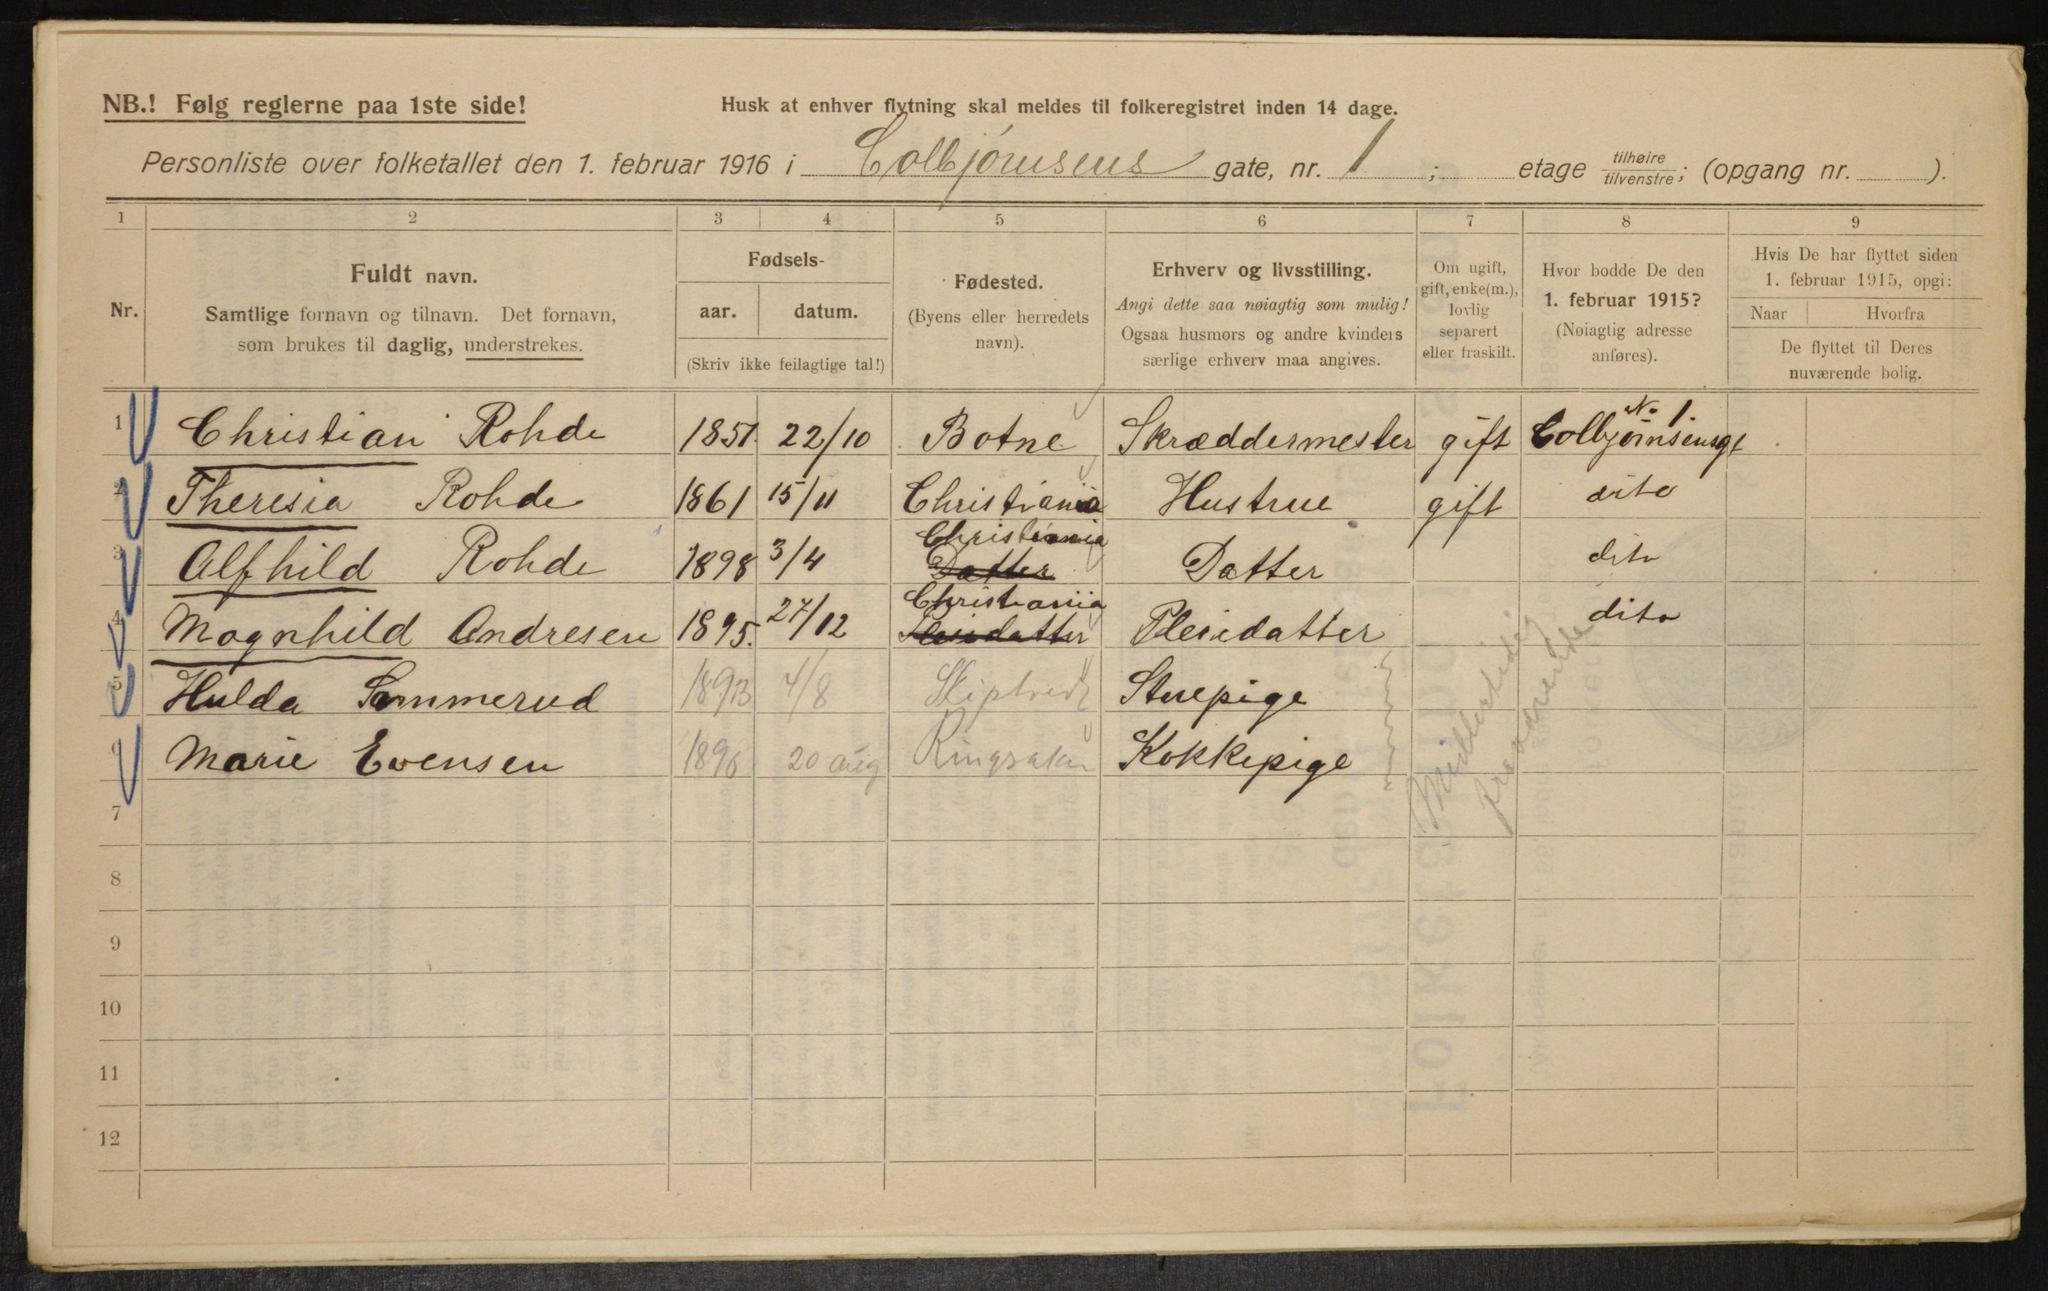 NB.! Følg reglerne paa 1ste side!
Husk at enhver flytning skal meldes til folkeregistret inden 14 dage.
Personliste over folketallet den 1. februar 1916 i Colbjørnsens gate, nr. 1 ; etage tilhøire tilvenstre; (opgang nr. ).
1 2 3 4 5 6 7 8 9
Nr.
Fuldt navn.
Samtlige fornavn og tilnavn. Det fornavn,
som brukes til daglig, understrekes.
Fødsels-
aar. datum.
(Skriv ikke feilagtige tal!)
Fødested.
(Byens eller herredets
navn).
Erhverv og livsstilling.
Angi dette saa nøiagtig som mulig!
Ogsaa husmors og andre kvinders
særlige erhverv maa angives.
Om ugift,
gift, enke(m.),
lovlig
separert
eller fraskilt.
Hvor bodde De den
1. februar 1915?
(Nøiagtig adresse
anføres).
Hvis De har flyttet siden
1. februar 1915, opgi:
Naar Hvorfra
De flyttet til Deres
nuværende bolig.
1 Christian Rohde 1851. 22/10 Botne Skræddermester gift Colbjørnsensgt No. 1.
2 Theresia Rohde 1861 15/11 Christiania Hustrue gift dito
3 Alfhild Rohde 1898 3/4 Christiania Datter Datter dito
4 Magnhild Andresen 1895. 27/12 Christiania Pleiedatter Pleiedatter dito
5 Hulda Sommerud 1893 4/8 Skiptvedt Stuepige
6 Marie Evensen 1896 20 aug Ringsaker Kokkepige
Midlertidig
fraværende
7
8
9
10
11
12